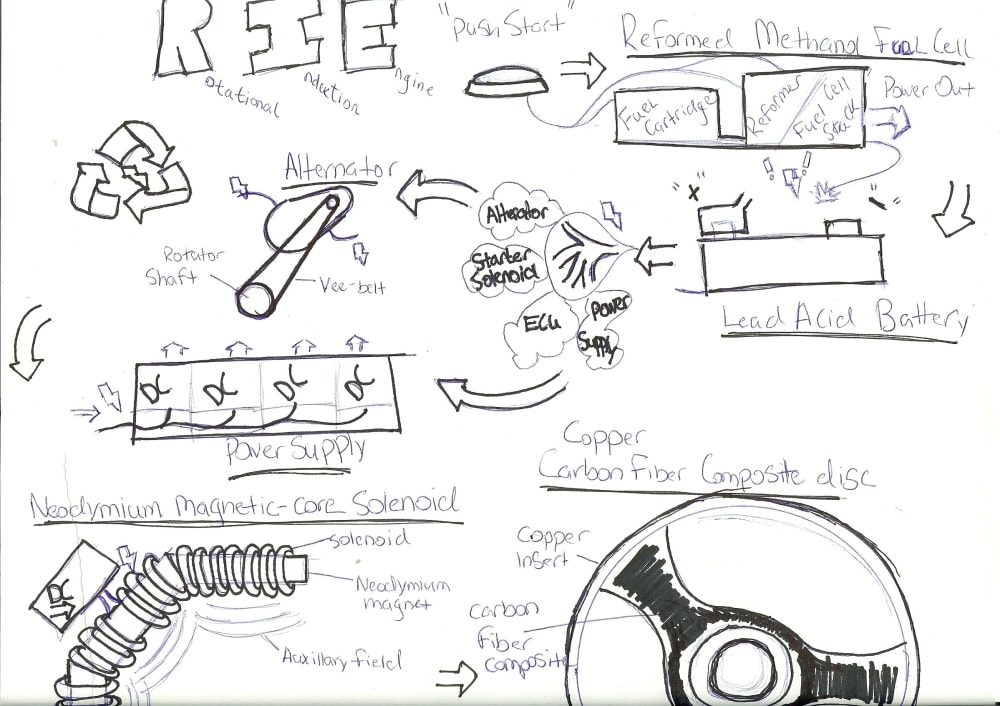 RIE
Rotational
Induction
Engine
"Push Start"
Reformed Methanol Fuel Cell
Fuel
Cartridge
Reformer
Fuel Cell
Stack
Power Out
! !!
"x"
"-"
Lead Acid Battery
Alterator
Starter
Solenoid
ECU
Power
Supply
Alternator
Rotator
Shaft
Vee-belt
DC DC DC DC
Power Supply
Neodymium magnetic-core Solenoid
Solenoid
Neodymium
magnet
Auxillary field
Copper
Carbon Fiber Composite disc
Copper
Insert
Carbon
Fiber
Composite